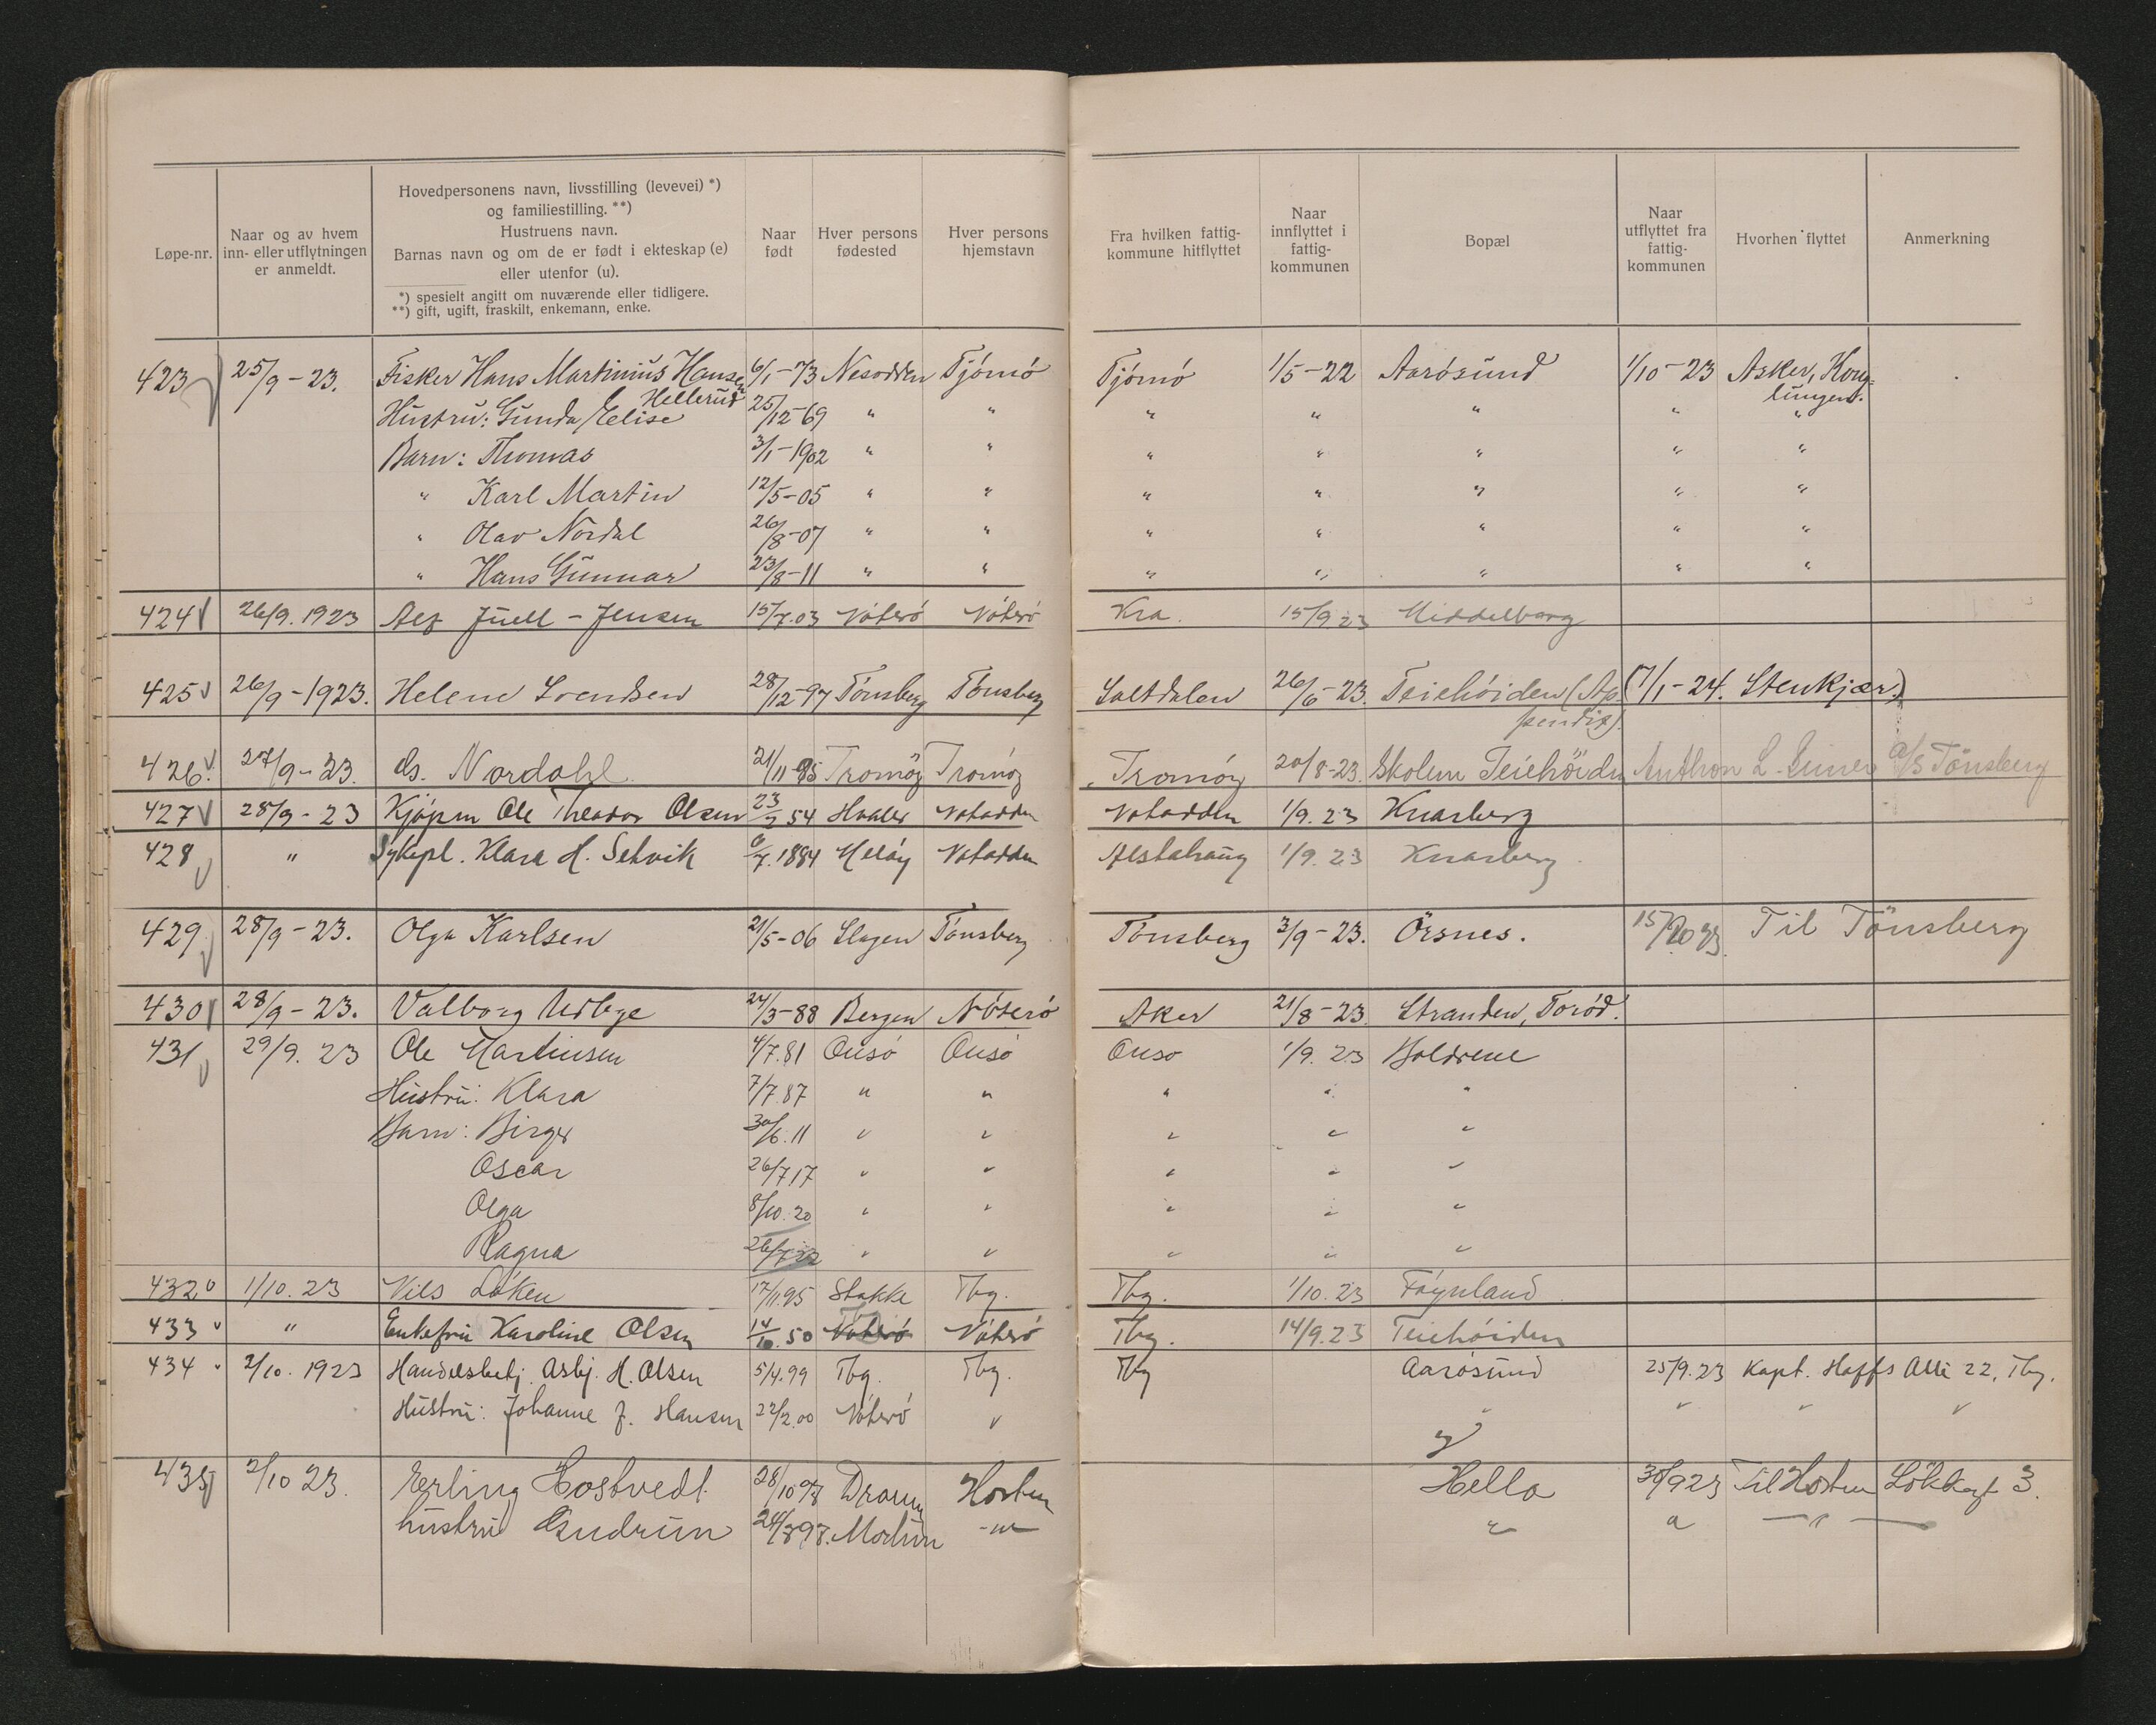 Løpe-nr.
Naar og av hvem
inn- eller utflytningen
er anmeldt.
Hovedpersonens navn, livsstilling (levevei) *)
og familiestilling. **)
Hustruens navn.
Barnas navn og om de er født i ekteskap (e)
eller utenfor (u).
*) spesielt angitt om nuværende eller tidligere.
**) gift, ugift, fraskilt, enkemann, enke.
Naar
født
Hver persons
fødested
Hver persons
hjemstavn
Fra hvilken fattig-
kommune hitflyttet
Naar
innflyttet i
fattig-
kommunen
Bopæl
Naar
utflyttet fra
fattig-
kommunen
Hvorhen flyttet
Anmerkning
423 25/9-23. Fisker Hans Martinius Hansen 6/1-73 Nesodden Tjømø Tjømø 1/5-22 Aarøsund 1/10-23 Asker, Kong-
Hellerud lungen.
Hustru: Gunda Elise 25/12-69 " " " " " " "
Barn: Thomas 3/1-1902 " " " " " " "
" Karl Martin 12/5-05 " " " " " " "
" Olav Nordal 26/8-07 " " " " " " "
" Hans Gunnar 23/8-11 " " " " " " "
424 26/9.1923 Alf Juell-Jensen 15/7.03 Nøterø Nøterø Kra. 15/9.23 Middelborg
425 26/9-1923. Helene Svendsen 28/12-97 Tønsberg Tønsberg Saltdalen 26/6-23. Teiehøiden (Ap- (7/1-24. Stenkjær.)
pendix).
426. 27/9-23. ds. Nordahl 21/11-95 Tromøy Tromøy Tromøy 20/8-23. Skolen Teiehöiden Anthon L. a/s Tönsberg
427 28/9-23 Kjøpm Ole Theodor Olsen 23/2 54 Hvaler Notodden Notodden 1/9.23 Knarberg
428 " Sykepl. Klara H. Selvik 6/7.1884 Meløy Notodden Alstahaug 1/9.23 Knarberg
429 28/9-23. Olga Karlsen 21/5-06 Slagen Tønsberg Tønsberg 3/9-23. Örsnes. 15/10 23. Til Tönsberg
430 28/9-23. Valborg 24/3-88 Bergen Nøterø Aker 21/8-23. Stranden, Torød.
431 29/9.23 Ole Martinsen 4/7.81 Onsø Onsø Onsø 1/9.23 Boldrene
Hustru: Klara 7/7.87 " " " " "
Barn: Birger 30/6.11 " " " " "
Oscar 26/7 17 " " " " "
Olga 8/10.20 " " " " "
Ragna 26/7.22 " " " " "
432 1/10.23 Nils Løken 17/11.95 Stokke Tbg. Tbg. 1/10.23 Føynland
433 " Enkefru Karoline Olsen 14/10.50 Nøterø Nøterø Tbg. 14/9.23 Teiehøiden
434 2/10.1923 Handelsbetj. Asbj. H. Olsen 5/4.99 Tbg. Tbg. Tbg Aarøsund 25/9.23 Kapt. Hoffs Alle 22, Tbg.
Hustru: Johanne J. Hansen 22/2.00 Nøterø " " " " "
435 2/10 23. Erling Hostvedt 28/10 98 Dramm Horten Hella 30/9 23 Til Horten Lökkegt 3.
hustru Gudrun 24/8 98. Modum -"- " " -"-